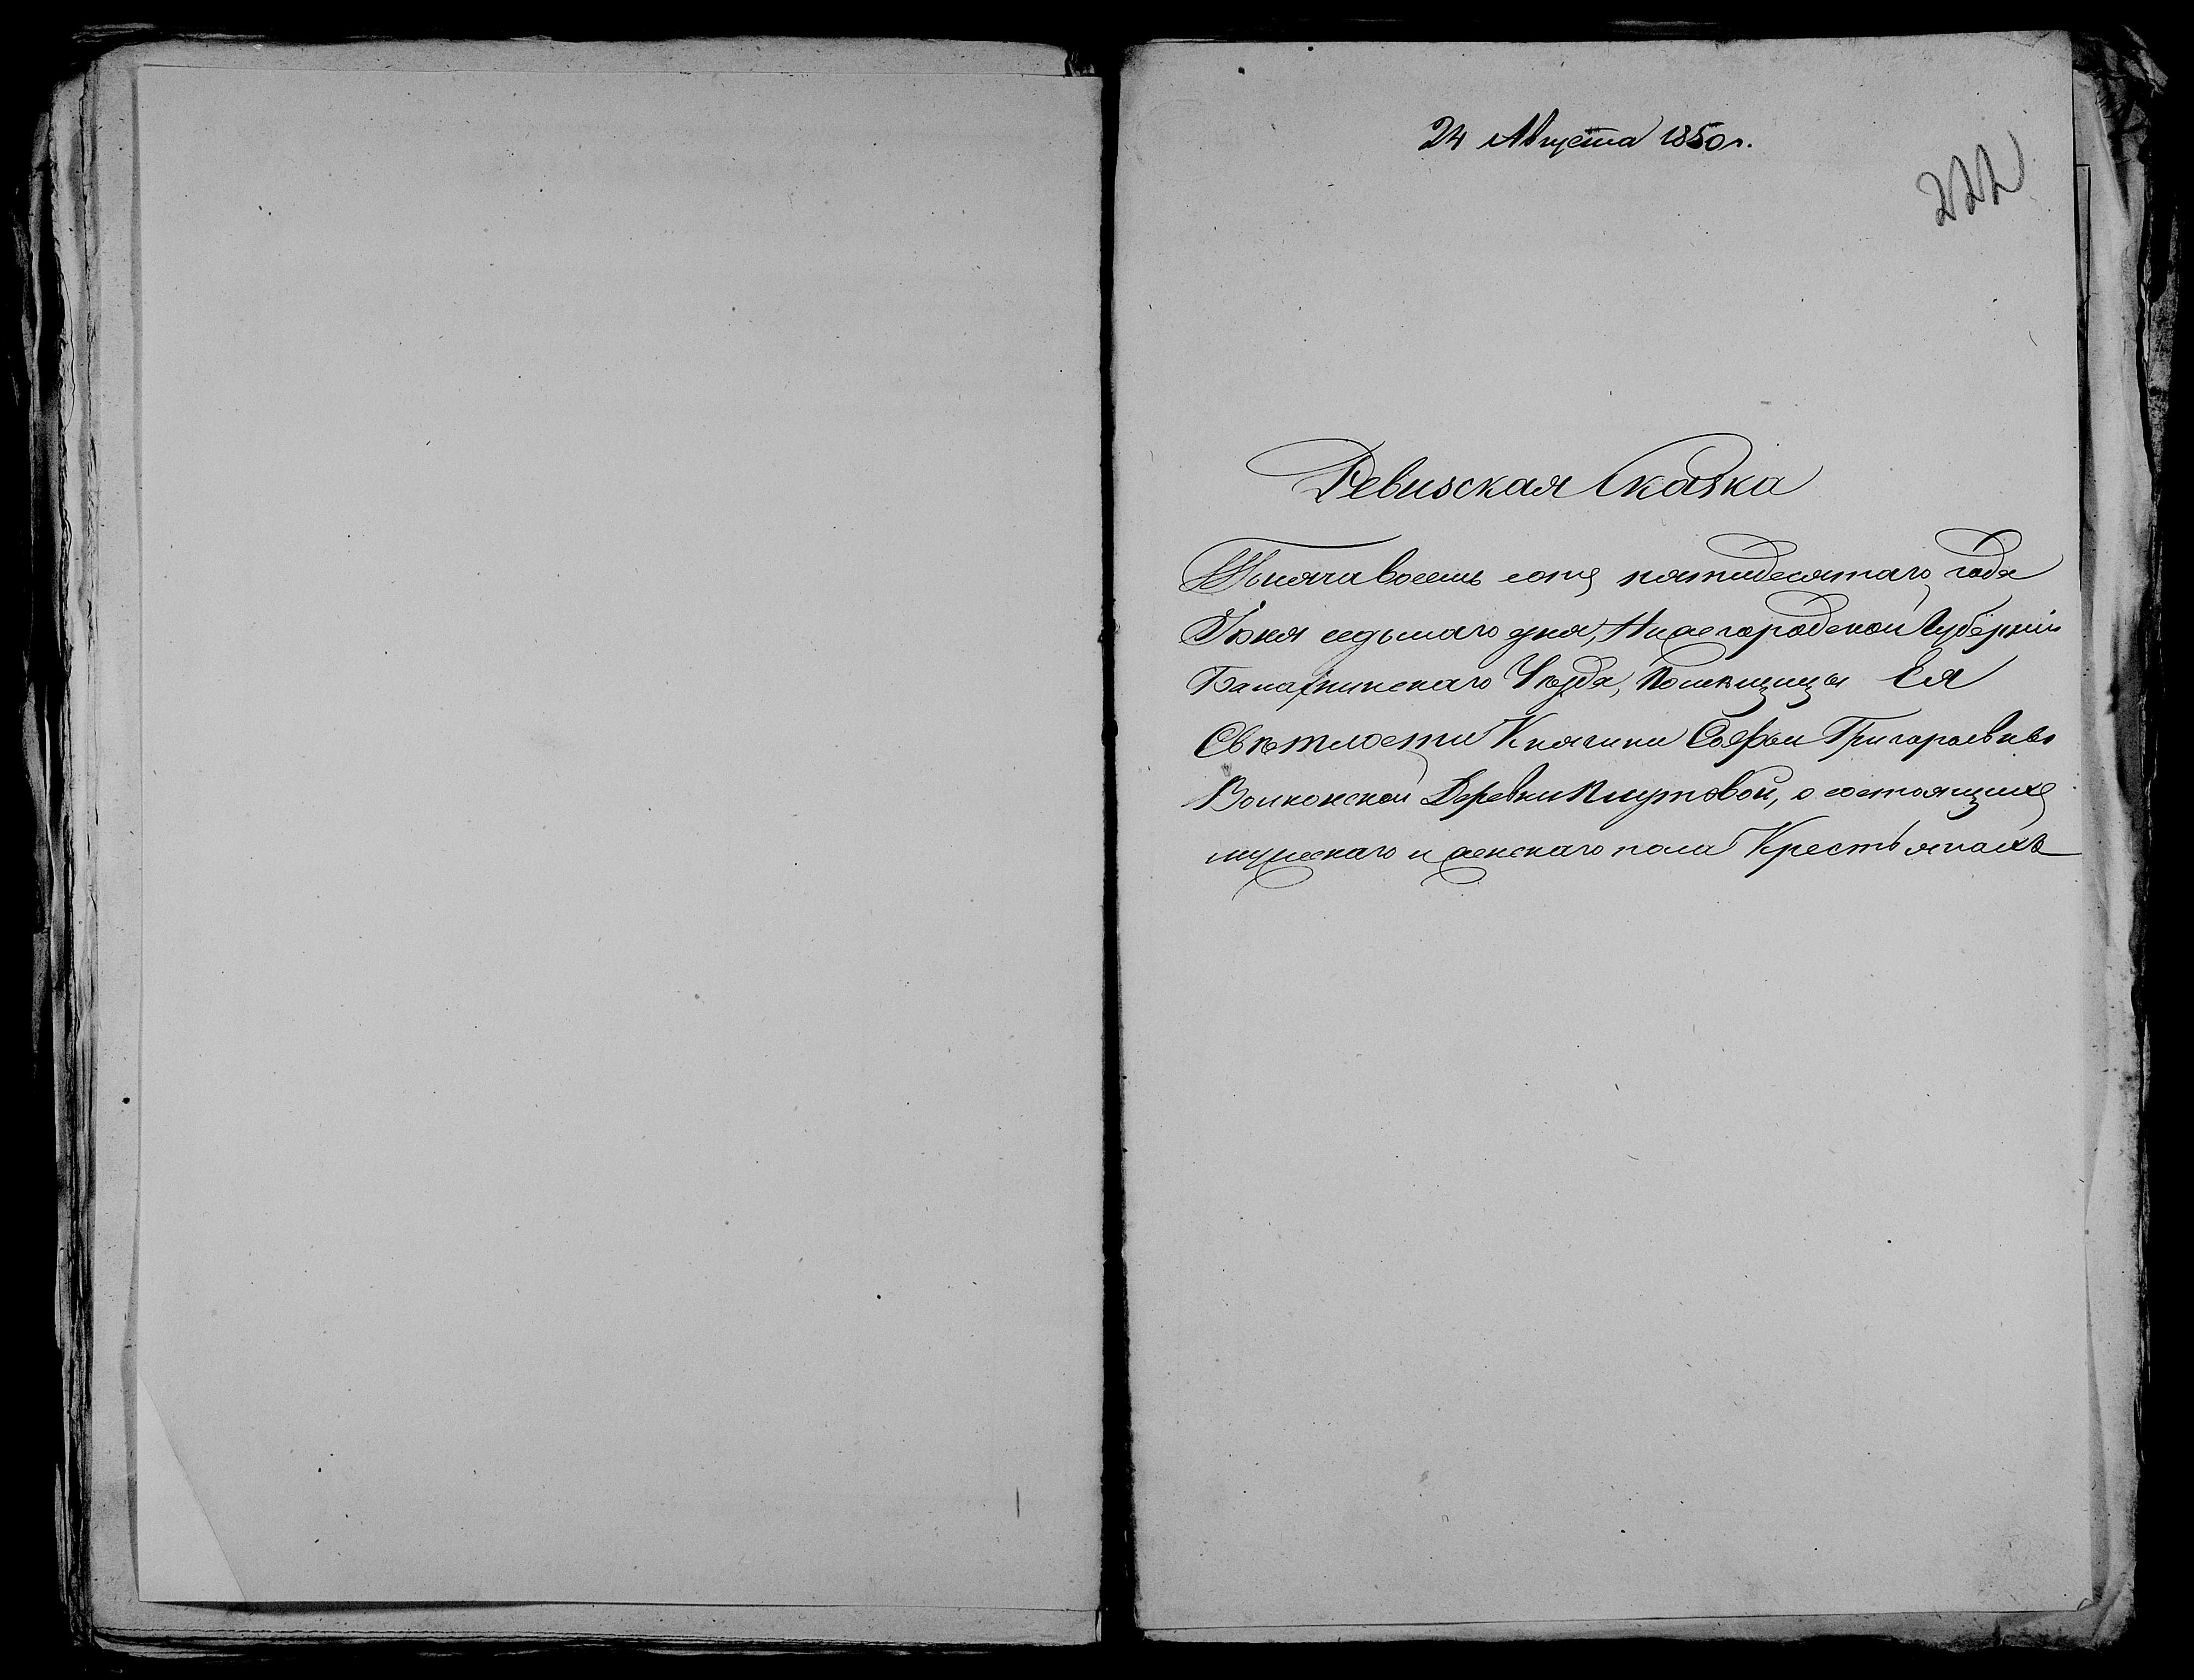 24 Августа 1850 г.
222
Ревизская Сказка
Тысяча восемь сотъ пятидесятаго года
Іюня седьмаго дня, Нижегородской Губерніи
Балахнинскаго Уѣзда, Помѣщицы Ея
Свѣтлости Княгини Софьи Григорьевны
Волконской Деревни, о состоящихъ
мужескаго и женскаго пола Крестьянахъ